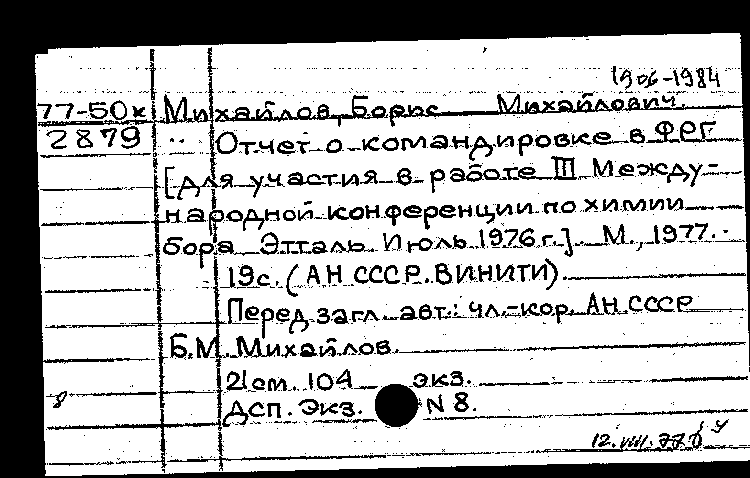 1906-1984
77-50к Михайлов, Борис Михайлович.
2879 Отчет о командировке в ФРГ
[для участия в работе III Между-
народной конференции по химии
бора Этталь Июль 1976 г.]. М., 1977.
19с. (АН СССР. ВИНИТИ).
Перед загл. авт.: чл.-кор. АН СССР
Б.М. Михайлов.
21см. 104 экз.
8 ДСП. Экз. N 8.
12.VIII.77